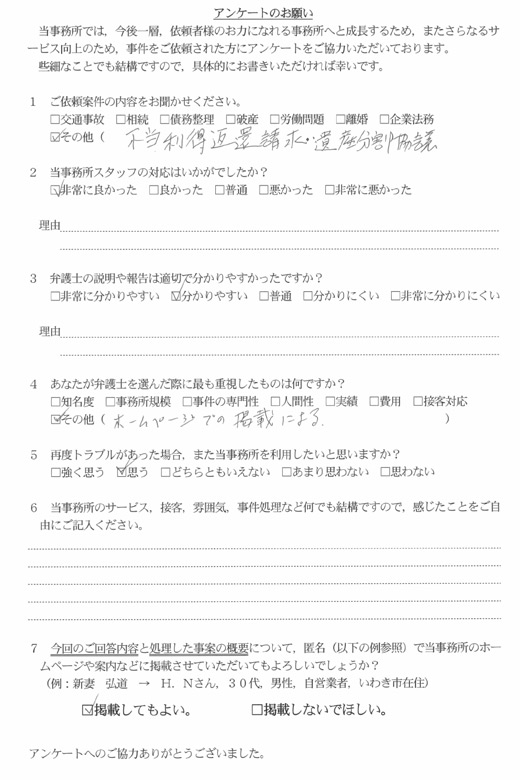 アンケートのお願い
当事務所では，今後一層，依頼者様のお力になれる事務所へと成長するため，またさらなるサ
ービス向上のため，事件をご依頼された方にアンケートをご協力いただいております。
些細なことでも結構ですので，具体的にお書きいただければ幸いです。
1 ご依頼案件の内容をお聞かせください。
□交通事故 □相続 □債務整理 □破産 □労働問題 □離婚 □企業法務
☑その他（ 不当利得返還請求・遺産分割協議
2 当事務所スタッフの対応はいかがでしたか？
☑非常に良かった □良かった □普通 □悪かった □非常に悪かった
理由
3 弁護士の説明や報告は適切で分かりやすかったですか？
□非常に分かりやすい ☑分かりやすい □普通 □分かりにくい □非常に分かりにくい
理由
4 あなたが弁護士を選んだ際に最も重視したものは何ですか？
□知名度 □事務所規模 □事件の専門性 □人間性 □実績 □費用 □接客対応
☑その他（ ホームページでの掲載による. ）
5 再度トラブルがあった場合，また当事務所を利用したいと思いますか？
□強く思う ☑思う □どちらともいえない □あまり思わない □思わない
6 当事務所のサービス，接客，雰囲気，事件処理など何でも結構ですので，感じたことをご自
由にご記入ください。
7 今回のご回答内容と処理した事案の概要について，匿名（以下の例参照）で当事務所のホー
ムページや案内などに掲載させていただいてもよろしいでしょうか？
（例：新妻 弘道 → H．Nさん，30代，男性，自営業者，いわき市在住）
☑掲載してもよい。 □掲載しないでほしい。
アンケートへのご協力ありがとうございました。